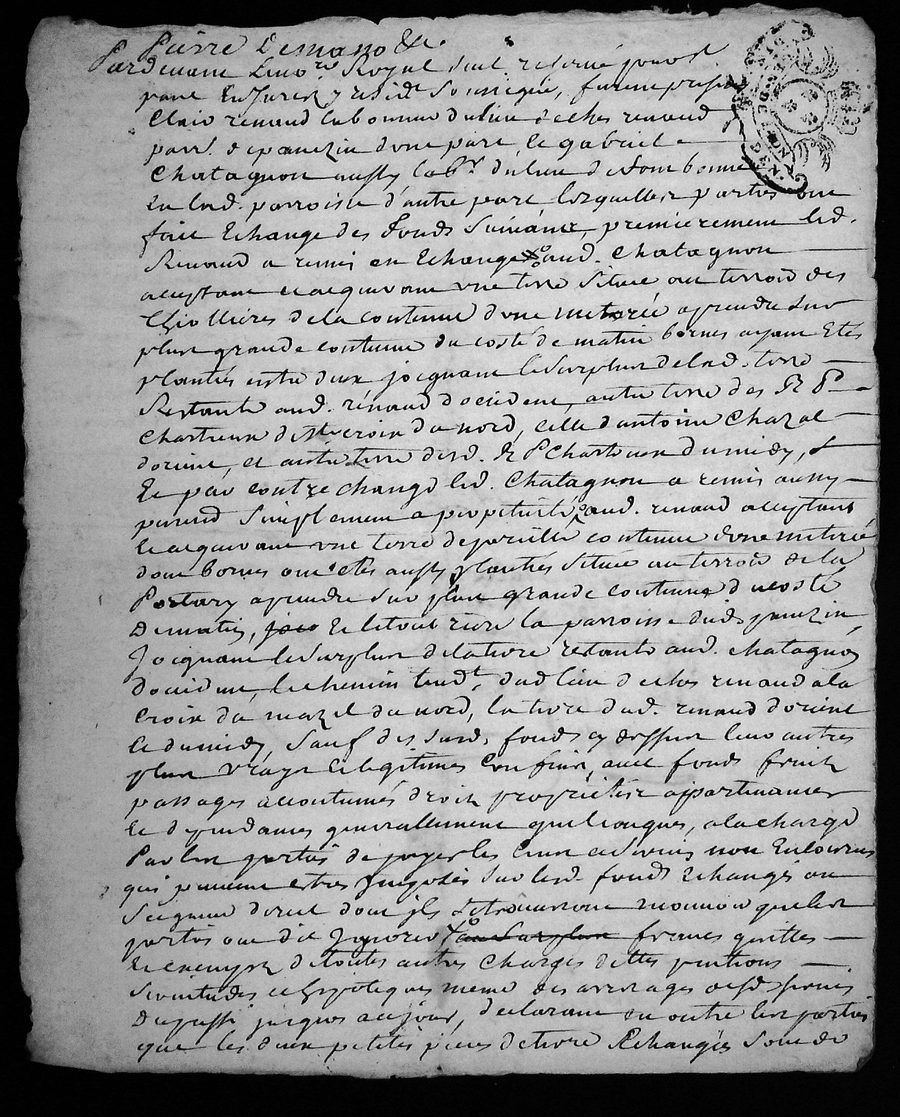 Pierre Demano &c.
Pardevant Le no.re Royal
parr. de panezin d'une part et gabriel
Chatagnon aussy lab.r du lieu de Combonne
En lad. parroisse d'autre part lesquelles parties ont
fait Echange des fonds suivants, premierement led.
Renaud a remis en Echange aud. Chatagnon
acceptant et acquerant une terre située au terroir des
de la contenue d'une meterée aprendre sur
plus grande contenue du costé de matin bornes ayant Etés
plantées entre deux jocquant le surplus de lad. terre
Restante aud. renaud d'occident, autre terre des R. P.
Chartreux de Ste croix du nord, celle d'antoine Chazal
dorient, et autre terre desd. R. P. Chartreux du midy,
Et par contrechange led. Chatagnon a remis aussy
purement simplement a perpetuité aud. renaud acceptant
et acquerant une terre de pareille contenue d'une meterée
dont bornes ont etés aussy plantées située au terroir de la
aprendre sur plus grande contenue du costé
De matin, Et le tout riere la parroisse dud. panezin
Jocquant le surplus de la terre restante aud. chatagnon
d'occident, le chemin tend.t dud. lieu de chés renaud a la
Croix du mazel du nord, la terre dud. renaud d'orient
Et du midy, sauf desd. fonds cy dessus leurs autres
plus vrays et legitimes Confins, avec fonds fruits
passages accoutumés droits proprietés appartenances
Et dependances generallement quelconques, a la charge
Par les parties de payer les Cens et servis non Encourus
qui peuvent estre Imposés sur lesd. fonds Echangés au
Seigneur direct dont ils se trouveront mouvoir que les
parties ont dit Ignorer au surplus francs quittes
Et exempts de toutes autres charges dettes pentions
Servitudes et hypoteques meme des arrerages desd. servis
Du passé jusques a ce jour, declarant en outre les parties
que les deux petites pieces de terre Echangées sont de